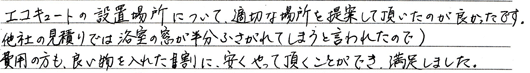 エコキュートの設置場所について、適切な場所を提案して頂いたのが良かったです。
他社の見積りでは浴室の窓が半分ふさがれてしまうと言われたので)
費用の方も、良い物を入れた割に、安くやって頂くことができ、満足しました。